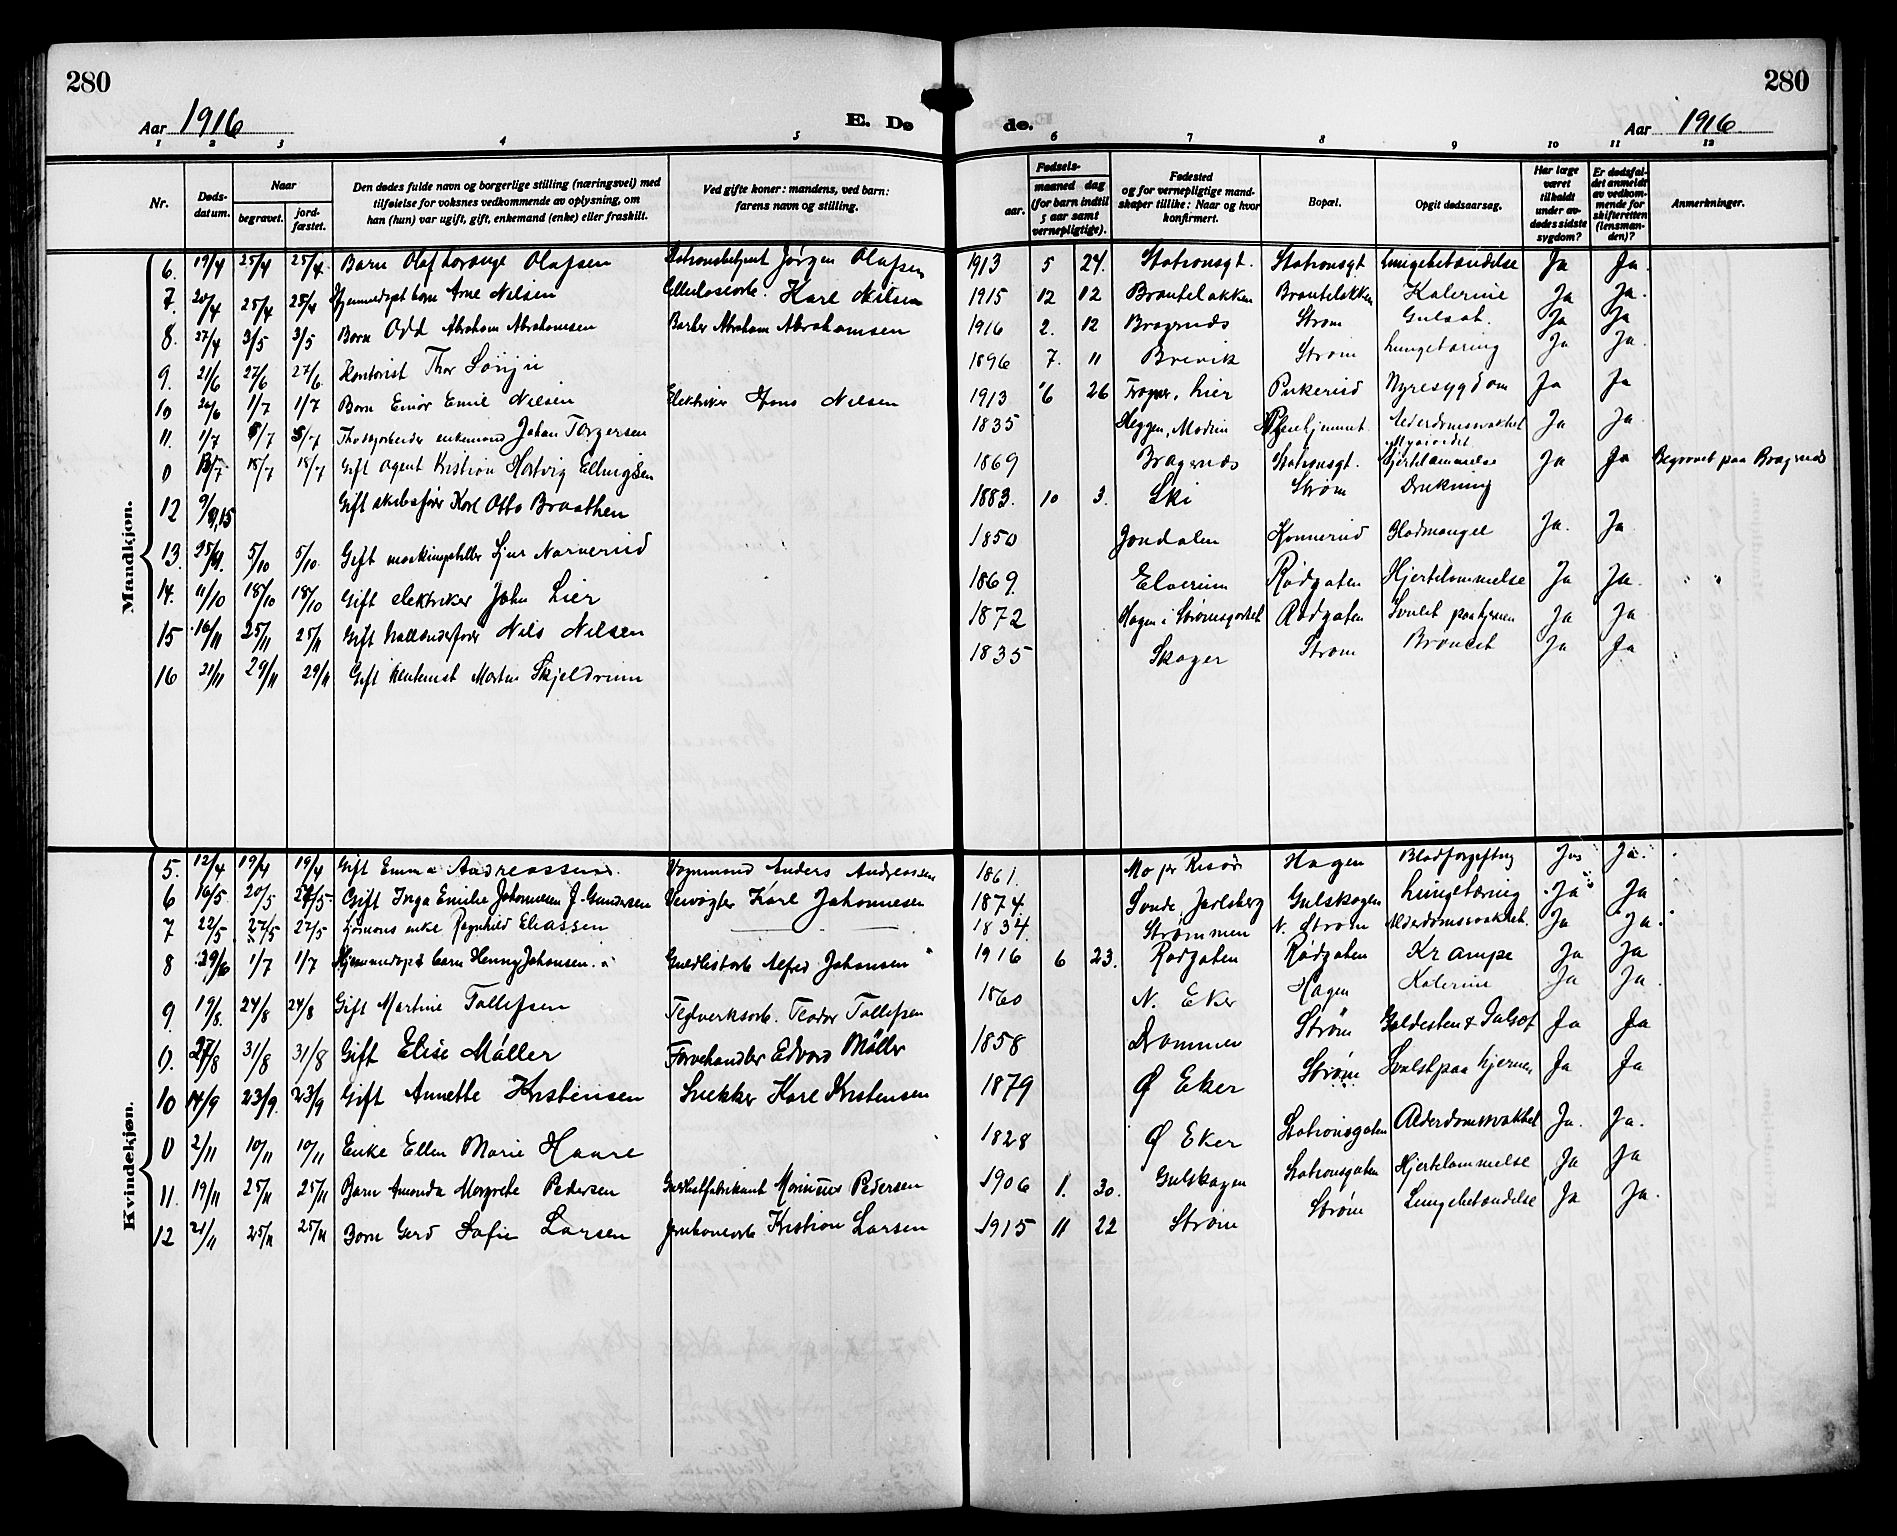 280
280
Aar 1916
E. Dø
de.
Aar 1916
1 2 3 4 5 6 7 8 9 10 11 12
Nr.
Døds-datum.
Naar
begravet.
jord-fæstet.
Den dødes fulde navn og borgerlige stilling (næringsvei) med tilføielse for voksnes vedkommende av oplysning, om han (hun) var ugift, gift, enkemand (enke) eller fraskilt.
Ved gifte koner: mandens, ved barn: farens navn og stilling.
Fødsels-
aar.
maaned dag
(for barn indtil 5 aar samt vernepligtige).
Fødested og for vernepligtige mandskaper tillike: Naar og hvor konfirmert.
Bopæl.
Opgit dødsaarsag.
Har læge været tilkaldt under avdødes sidste sygdom?
Er dødsfaldet anmeldt av vedkommende for skifteretten (lensmanden)?
Anmerkninger.
Mandkjøn.
6. 19/4 25/4 25/4 Barn Olaf Lorange Olafsen Stationsbetjent Jørgen Olafsen 1913 5 24. Stationsgt. Stationsgt. Lungebetændelse Ja Ja.
7. 20/4 25/4 25/4 barn Arne Nilsen Cellulosearb. Karl Nilsen 1915 12 12 Branteløkken Branteløkken Katerine Ja Ja.
8. 27/4 3/5 3/5 Barn Odd Abraham Abrahamsen Barber Abraham Abrahamsen 1916 2. 12 Bragernæs Strøm Gulsot. Ja Ja
9. 21/6 27/6 27/6. Kontorist Thor 1896 7. 11 Brevik Strøm Lungetæring Ja Ja.
10 26/6 1/7 1/7 Barn Einar Emil Nilsen Elektriker Hans Nilsen 1913 6 26 Frogner, Lier Pukerud Nyresygdom Ja Ja
11. 1/7 8/7 8/7 enkemand Johan Torgersen 1835 Heggen, Modum Pleiehjemmet. Alderdomssvakhet Ja Ja
0 13/7 18/7 18/7 Gift agent Kristian Hartvig Ellingsen 1869 Bragernæs Stationsgt. Hjertelammelse Ja Ja Begravet paa Bragernæs
12 9/9,15 Gift skibsfører Karl Otto Braathen 1883. 10 3. Ski Strøm Drukning
13. 25/9. 5/10 5/10. Gift Narverud 1850 Jondalen Konnerud Blodmangel Ja. Ja.
14. 11/10 18/10 18/10 Gift elektriker John Lier 1869. Elverum Rødgaten Hjertelammelse Ja Ja. " "
15 16/11 25/11 25/11 Gift Nils Nilsen 1872 Hagen i Strømsgodset Rødgaten Svulst paa hjernen Ja Ja
16 21/11 29/11 29/11 Gift Morten Skjeldrum 1835 Skoger Strøm Broncit Ja Ja
Kvindekjøn.
5. 12/4 19/4 19/4 Gift Emma Andreassen. Vognmand Anders Andreassen 1861. Mo pr Risør Hagen Blodforgiftnig Ja Ja.
6 16/5 20/5 27/5 Gift Inga Emilie Johannesen f. Gundersen Veivogter Karl Johannesen 1874. Sande, Jarlsberg Gulskogen Lungetæring Ja Ja
7 22/5 27/5 27/5 enke Ragnhild Eliassen 1834. Strømmen N. Strøm Alderdomssvakhet. Ja Ja.
8 29/6 1/7 1/7 Hjemmedøpt barn Henny Johansen. Guldlistarb Alfred Johansen 1916 6 23. Rødgaten Rødgaten Krampe Ja Ja
9. 19/8. 24/8 24/8 Gift Martine Tollefsen Teglverksarb. Teodor Tollefsen 1860 N. Eker Hagen Katerine Ja Ja.
0. 27/8 31/8 31/8 Gift Elise Møller Farvehandler Edvard Møller 1858 Drammen Strøm Galdesten & Gulsot Ja Ja
10 14/9 23/9. 23/9 Gift Annette Kristensen Snekker Karl Kristensen 1879 Ø Eker Strøm Svulst paa hjernen Ja Ja
0 2/11 10/11 10/11 Enke Ellen Marie Haare 1828 Ø Eker Stationsgaten Alderdomssvakhet Ja. Ja.
11. 19/11 25/11 25/11 Barn Amanda Margrete Pedersen Guldlistfabrikant Marinius Pedersen 1906 1. 30. Gulskogen Stationsgaten Hjertelammelse Ja Ja
12 21/11 25/11 25/11 Barn Gerd Sofie Larsen Jernbanearb Kristian Larsen 1915 11 22 Strøm Strøm Lungebetændelse Ja Ja.